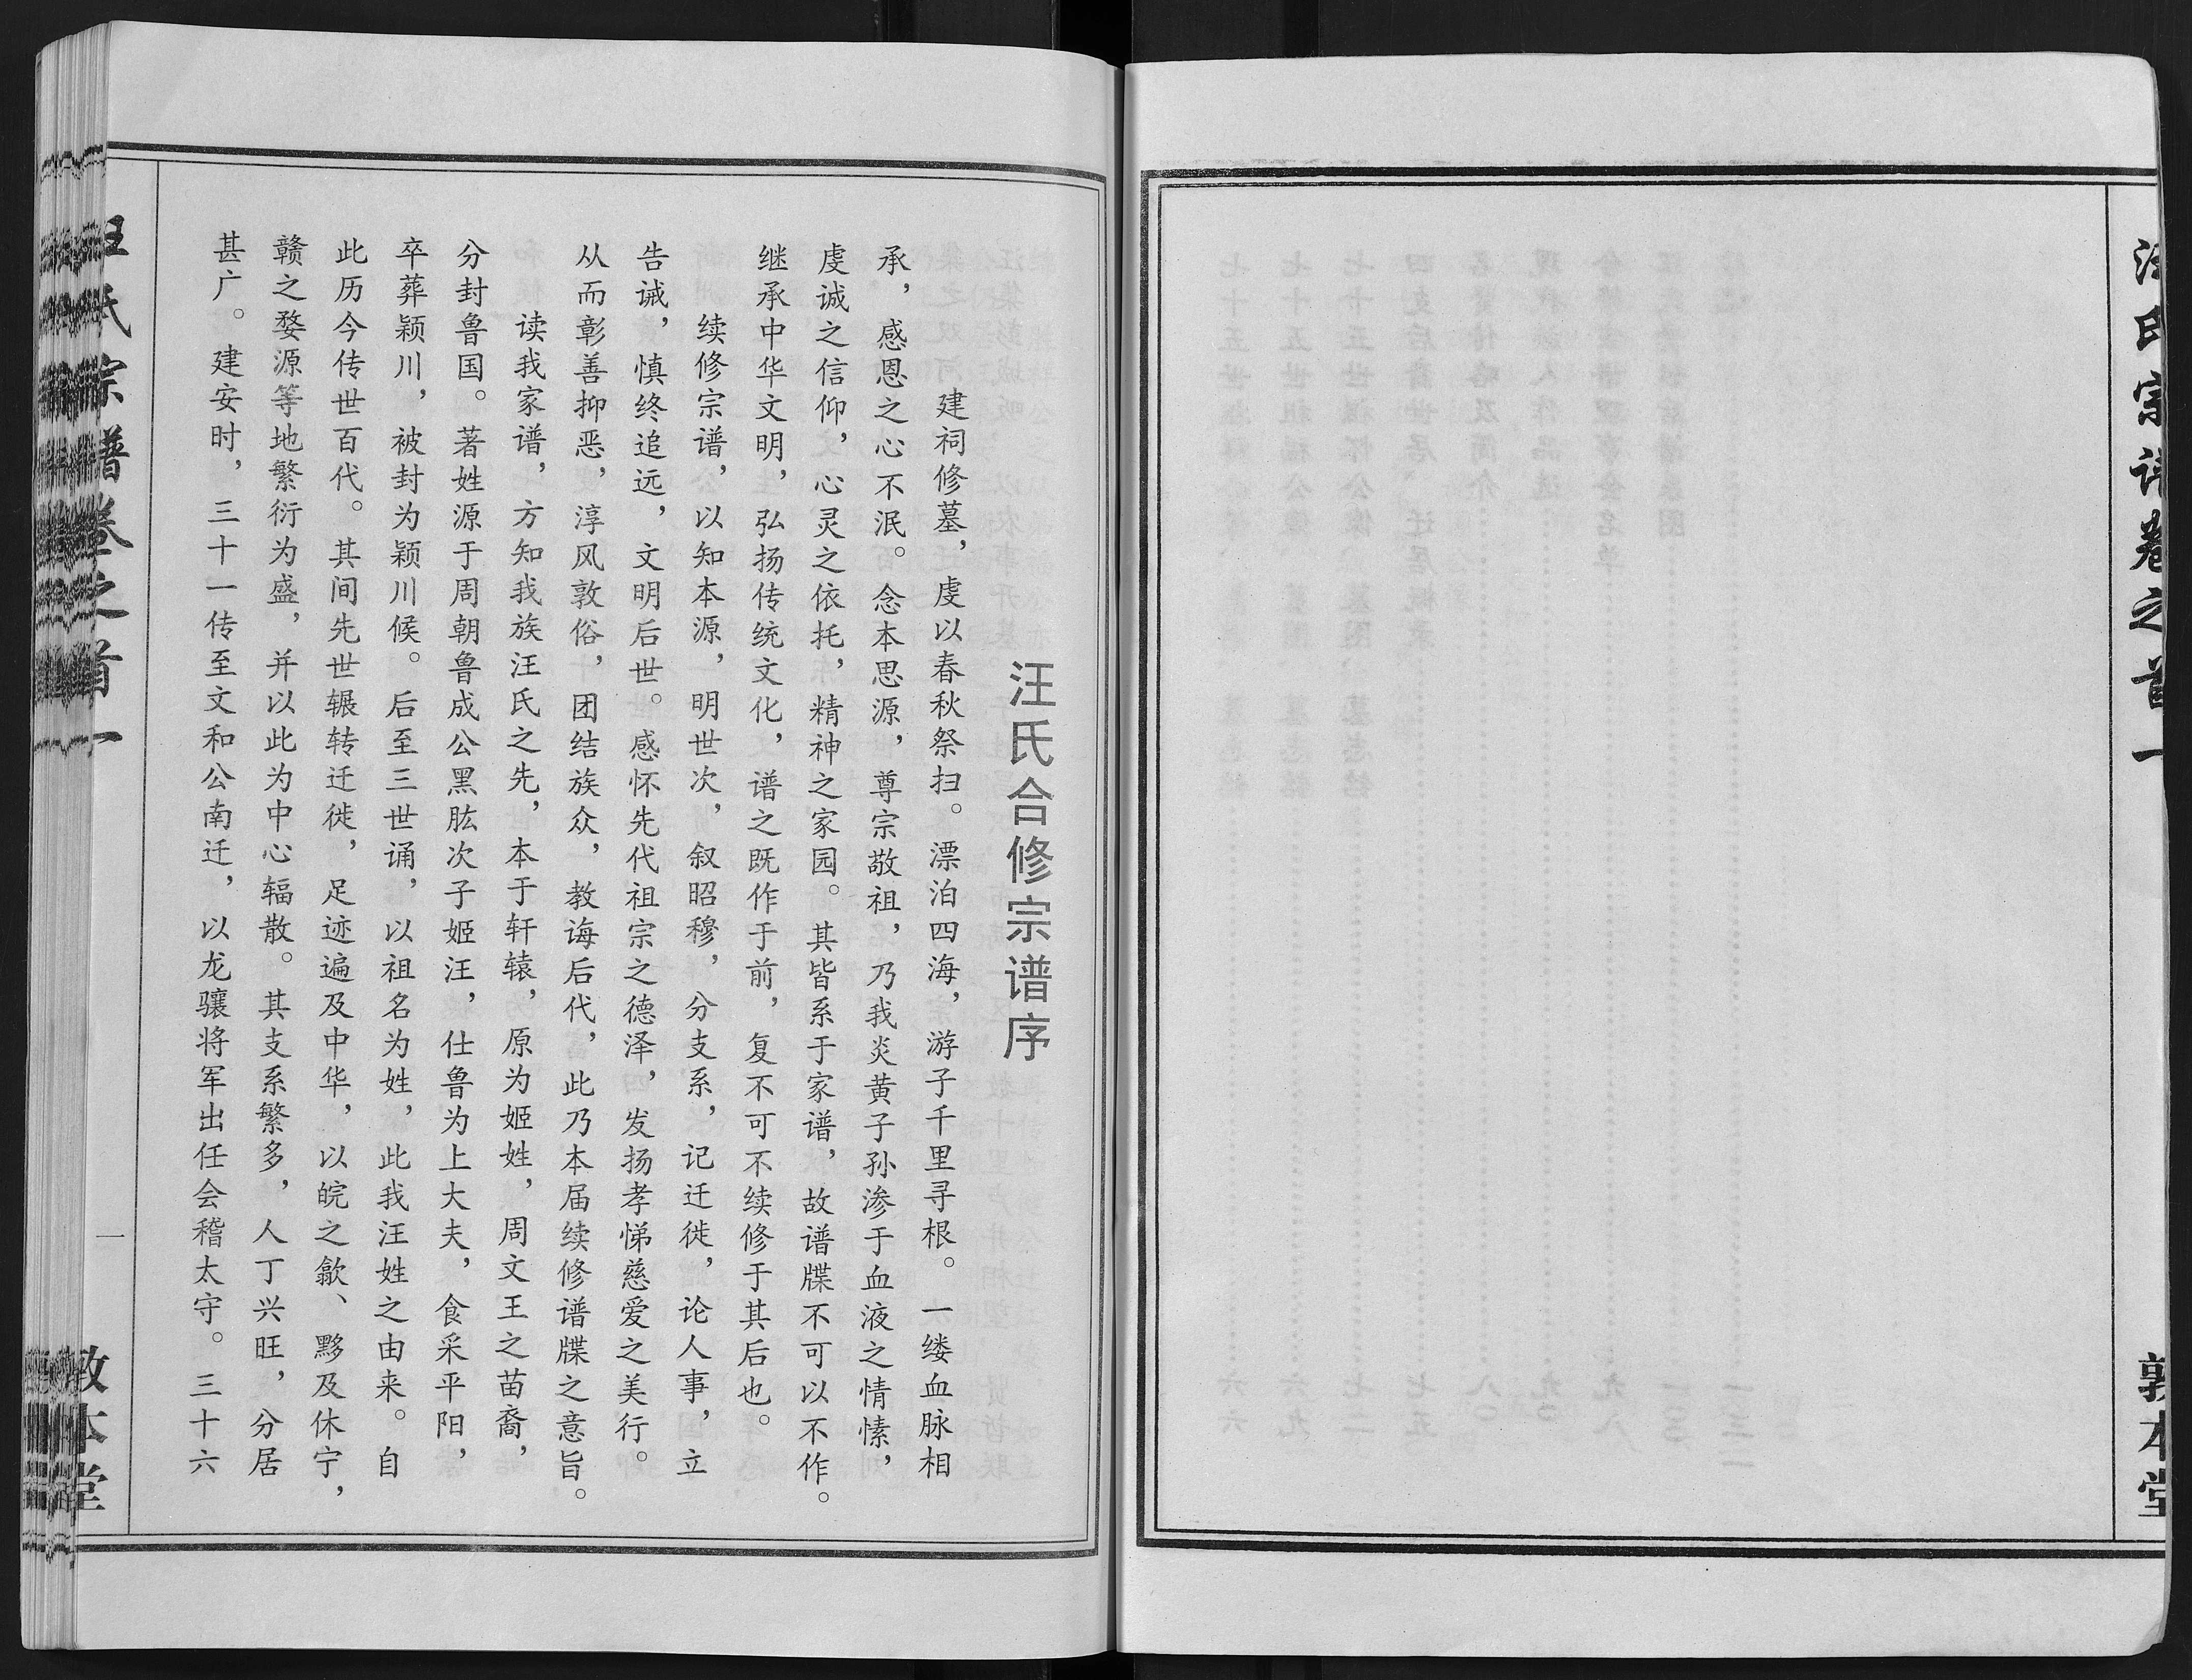 汪氏宗谱卷之首一
敦本堂
汪氏合修宗谱序
建祠修墓，虔以春秋祭扫。漂泊四海，游子千里寻根。一缕血脉相
承，感恩之心不泯。念本思源，尊宗敬祖，乃我炎黄子孙渗于血液之情愫，
虔诚之信仰，心灵之依托，精神之家园。其皆系于家谱，故谱牒不可以不作。
继承中华文明，弘扬传统文化，谱之既作于前，复不可不续修于其后也。
续修宗谱，以知本源，明世次，叙昭穆，分支系，记迁徙，论人事，立
告诫，慎终追远，文明后世。感怀先代祖宗之德泽，发扬孝悌慈爱之美行。
从而彰善抑恶，淳风敦俗，团结族众，教诲后代，此乃本届续修谱牒之意旨。
读我家谱，方知我族汪氏之先，本于轩辕，原为姬姓，周文王之苗裔，
分封鲁国。著姓源于周朝鲁成公黑肱次子姬汪，仕鲁为上大夫，食采平阳，
卒葬颖川，被封为颖川候。后至三世诵，以祖名为姓，此我汪姓之由来。自
此历今传世百代。其间先世辗转迁徙，足迹遍及中华，以皖之歙、黟及休宁，
赣之婺源等地繁衍为盛，并以此为中心辐散。其支系繁多，人丁兴旺，分居
甚广。建安时，三十一传至文和公南迁，以龙骧将军出任会稽太守。三十六
汪氏宗谱卷之首一
一
敦本堂